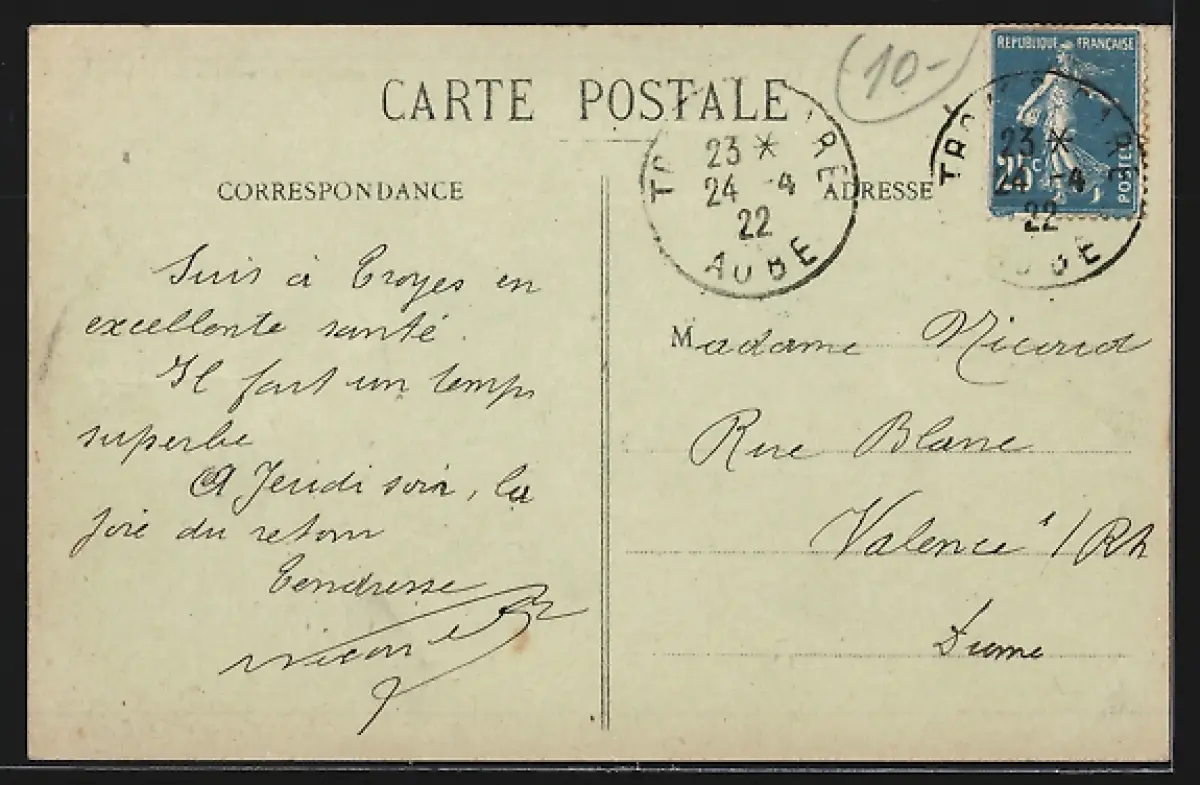 CARTE POSTALE
(10-
REPUBLIQUE FRANÇAISE
25c
POSTES
23 *
24 -4
22
AUBE
23 *
24 -4
22
CORRESPONDANCE
ADRESSE
Suis à Troyes en
excellente santé.
Il fait un temps
superbe
A Jeudi soir, la
joie du retour
Tendresse
Madame Nicard
Rue Blanc
Valence s/Rh
Drome